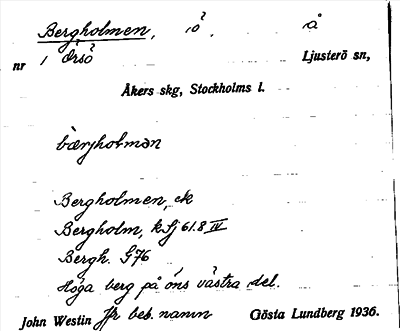 Bergholmen, ö, å
nr 1 Örsö Ljusterö sn,
Åkers skg, Stockholms l.
bærjholmən
Bergholmen, ek
Bergholm, k Sj 61.8 IV
Bergh. G76
Höga berg på öns västra del.
John Westin Jfr beb.namn Gösta Lundberg 1936.